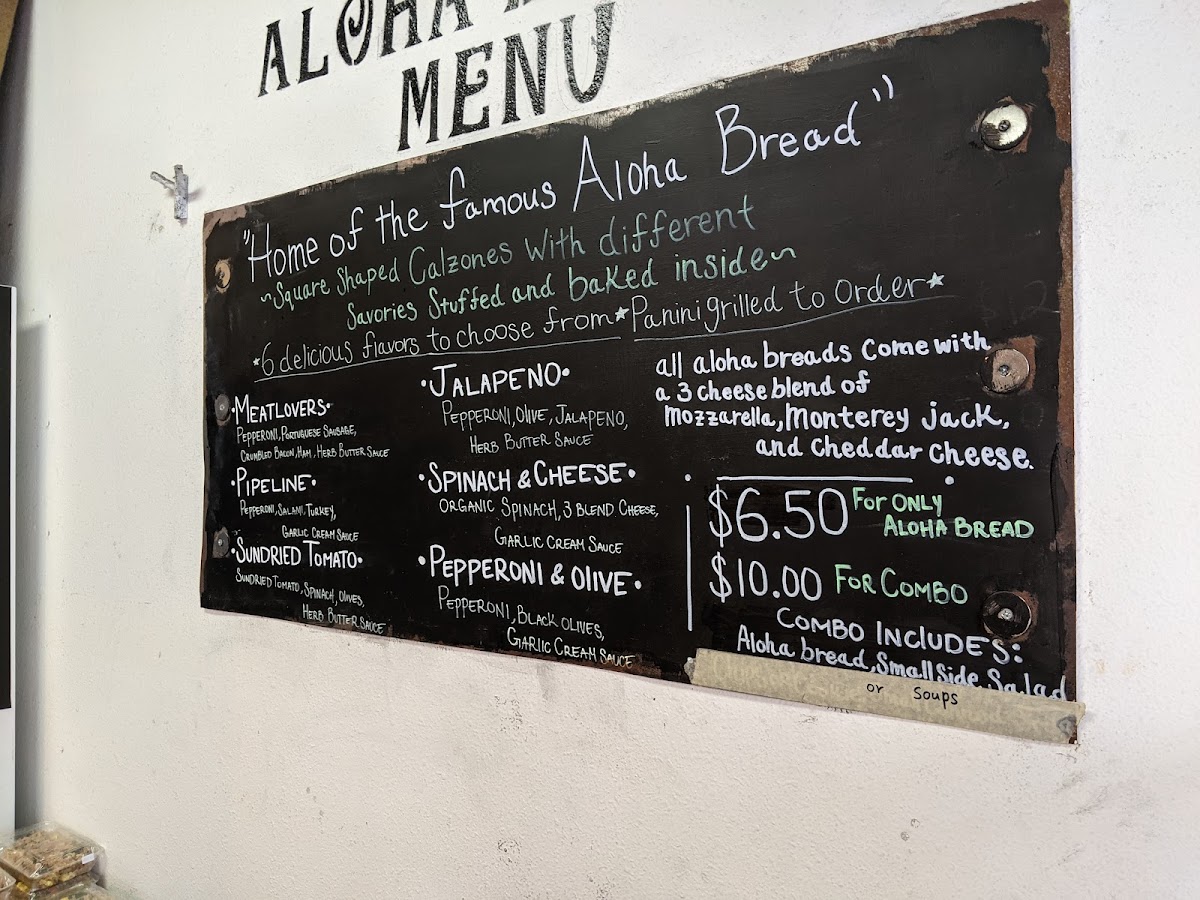 ALOHA
MENU
"Home of the famous Aloha Bread"
~Square Shaped Calzones With different
Savories Stuffed and baked inside~
*6 delicious flavors to choose from*Panini grilled to Order*
•MEATLOVERS•
PEPPERONI, PORTUGUESE SAUSAGE,
CRUMBLED BACON, HAM, HERB BUTTER SAUCE
•PIPELINE•
PEPPERONI, SALAMI, TURKEY,
GARLIC CREAM SAUCE
•SUNDRIED TOMATO•
SUNDRIED TOMATO, SPINACH, OLIVES,
HERB BUTTER SAUCE
•JALAPENO•
PEPPERONI, OLIVE, JALAPENO,
HERB BUTTER SAUCE
•SPINACH & CHEESE•
ORGANIC SPINACH, 3 BLEND CHEESE,
GARLIC CREAM SAUCE
•PEPPERONI & OLIVE•
PEPPERONI, BLACK OLIVES,
GARLIC CREAM SAUCE
all aloha breads Come with
a 3 cheese blend of
Mozzarella, Monterey jack,
and Cheddar Cheese.
$6.50 FOR ONLY
ALOHA BREAD
$10.00 FOR COMBO
COMBO INCLUDES:
Aloha bread, Small Side Salad
or soups